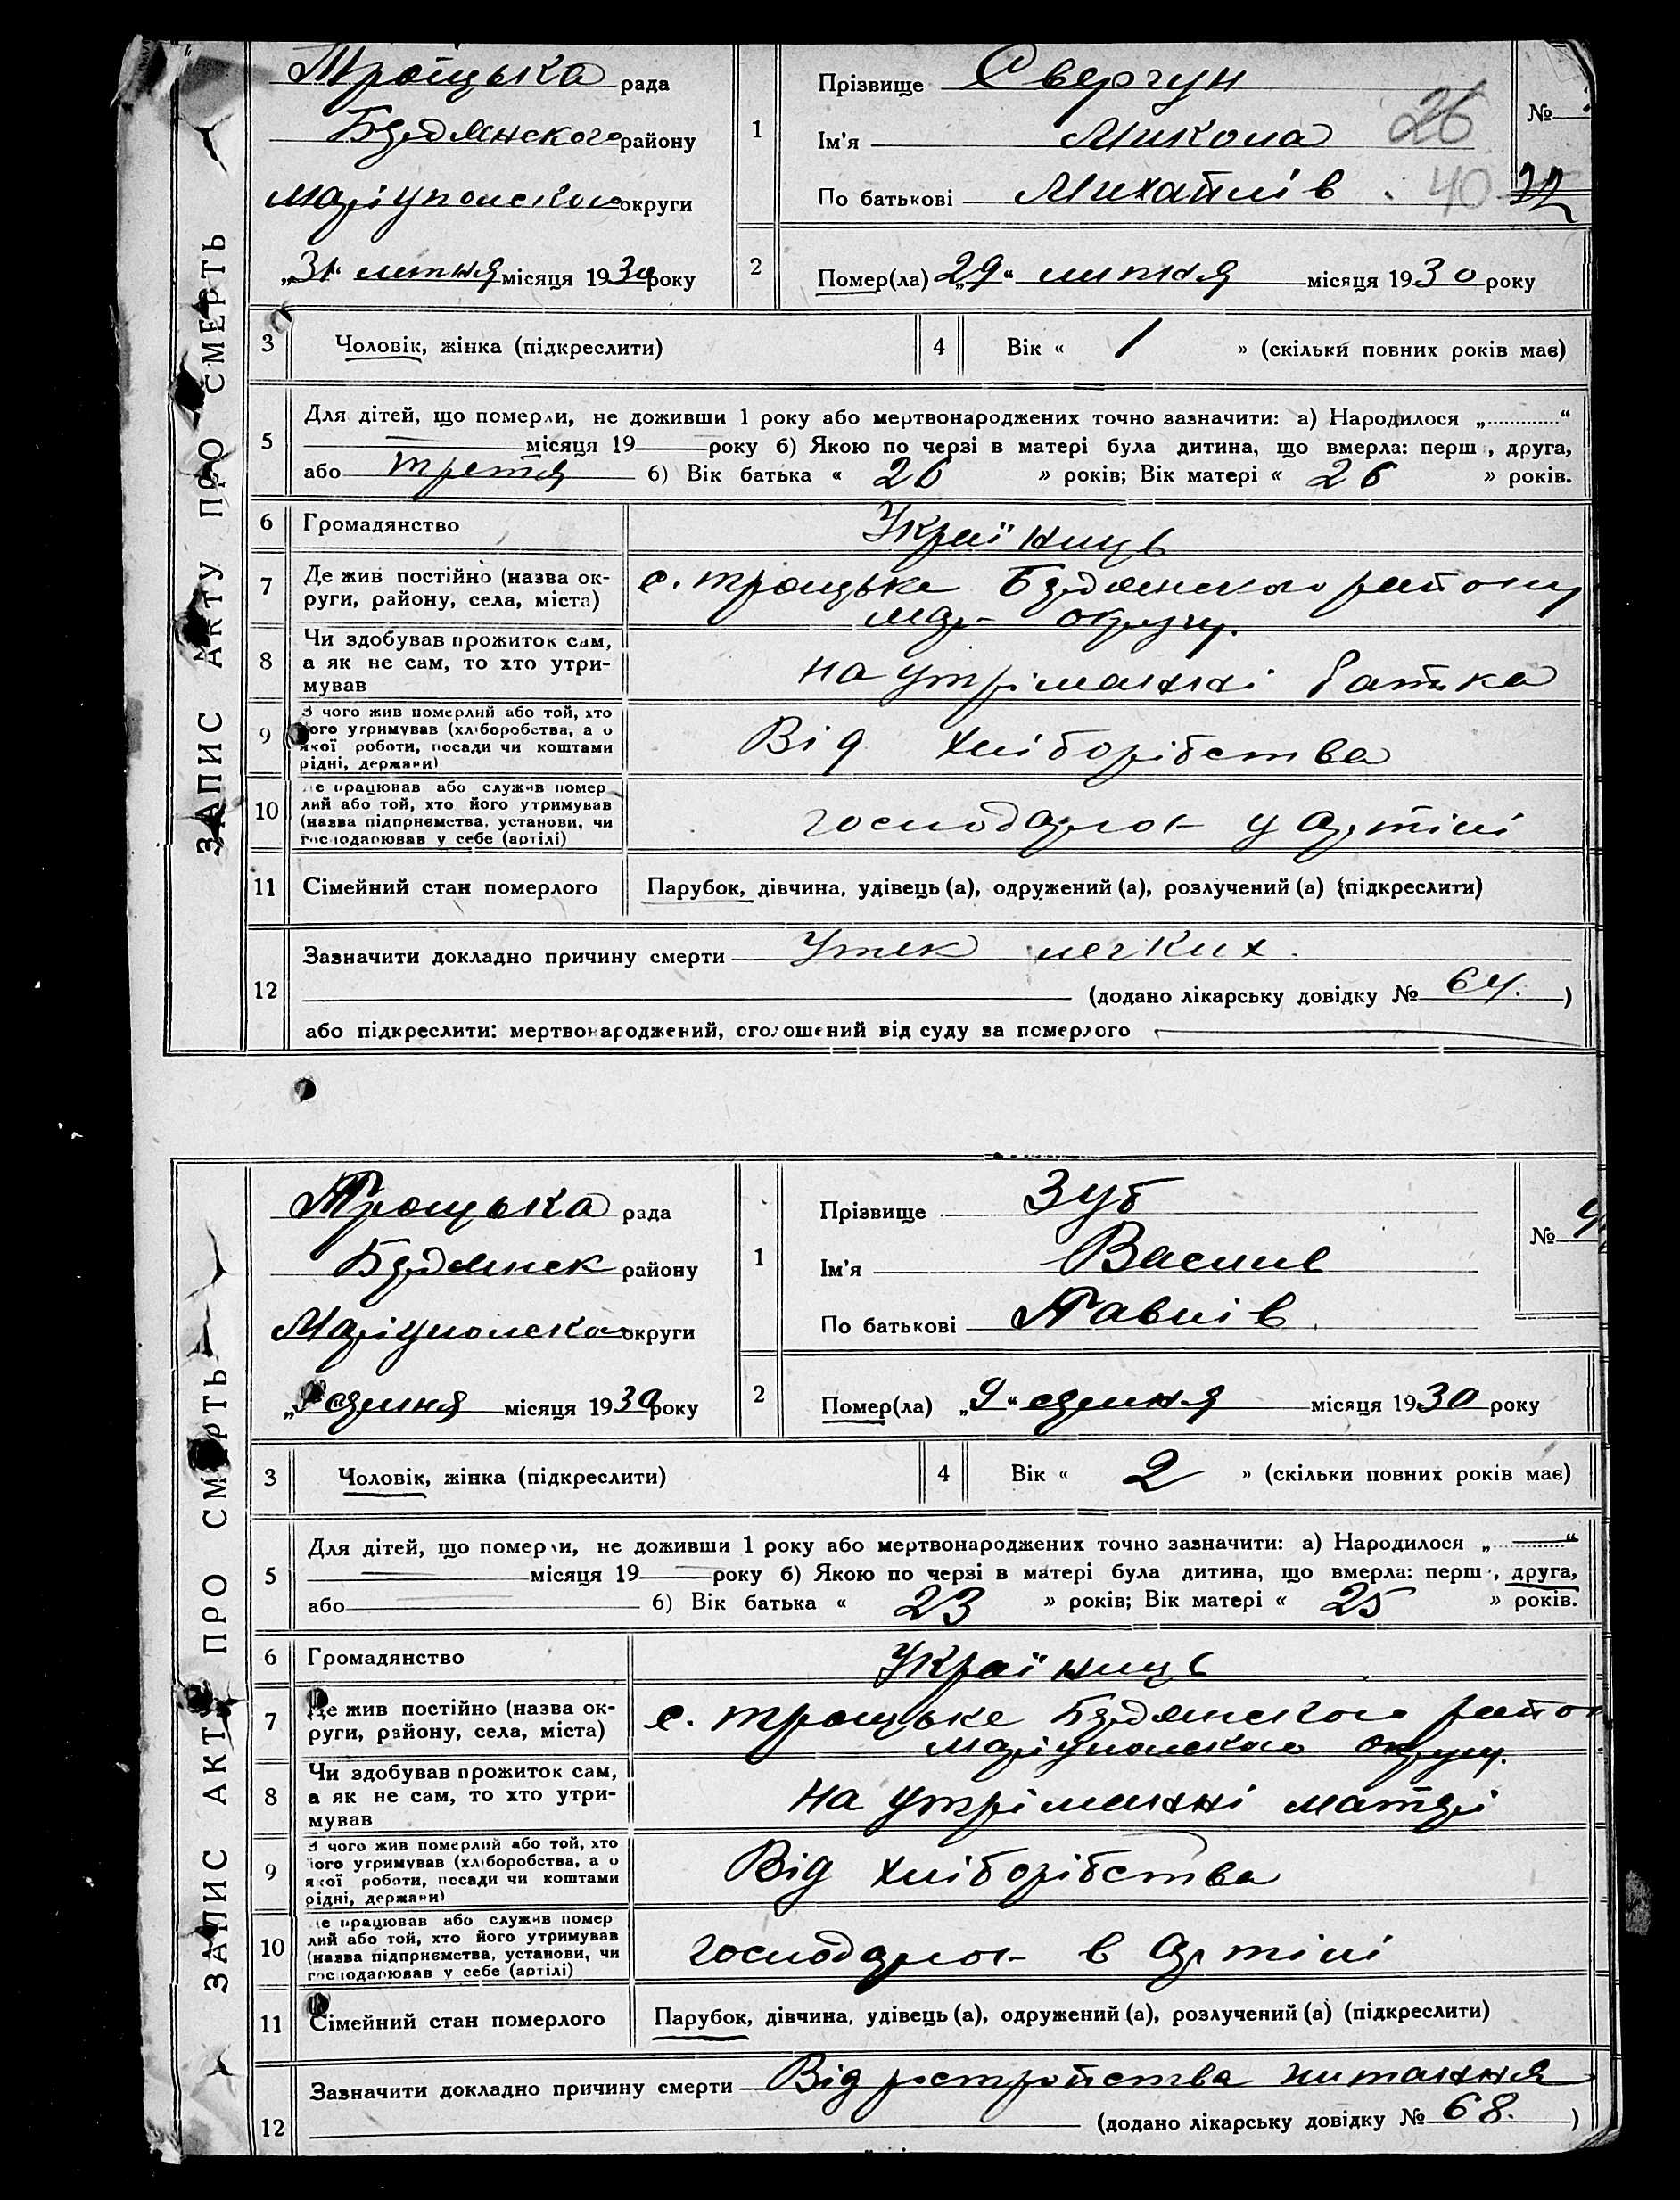 ЗАПИС АКТУ ПРО СМЕРТЬ
Троїцька рада
Будянского району
Маріупольского округи
„31“ липня місяця 1930 року
1
Прізвище Свергун
Ім'я Микола
По батькові Михайлів
№
26
40
2
Помер(ла) „29“ липня місяця 1930 року
3 Чоловік, жінка (підкреслити)
4 Вік « 1 » (скільки повних років має)
5
Для дітей, що померли, не доживши 1 року або мертвонароджених точно зазначити: а) Народилося „ “
місяця 19 року б) Якою по черзі в матері була дитина, що вмерла: перш , друга,
або третя 6) Вік батька « 26 » років; Вік матері « 26 » років.
6 Громадянство Українць
7 Де жив постійно (назва ок-
руги, району, села, міста)
с. троицьке Будянского району
мар- округу.
8 Чи здобував прожиток сам,
а як не сам, то хто утри-
мував
на утріманні батька
9 З чого жив померлий або той, хто
його утримував (хліборобства, а о
якої роботи, посади чи коштами
рідні, держави)
Від хліборібства
10 Де працював або служив помер
лий або той, хто його утримував
(назва підприємства, установи, чи
господарював у себе (артілі)
господарює у Артілі
11 Сімейний стан померлого Парубок, дівчина, удівець (а), одружений (а), розлучений (а) (підкреслити)
12
Зазначити докладно причину смерти Утек легких.
(додано лікарську довідку № 64. )
або підкреслити: мертвонароджений, оголошений від суду за померлого
ЗАПИС АКТУ ПРО СМЕРТЬ
Троицька рада
Будянск району
Маріупольского округи
„9“ серпня місяця 1930 року
1
Прізвище Зуб
Ім'я Василь
По батькові Павлів
№
2
Помер(ла) „9“ серпня місяця 1930 року
3 Чоловік, жінка (підкреслити)
4 Вік « 2 » (скільки повних років має)
5
Для дітей, що померли, не доживши 1 року або мертвонароджених точно зазначити: а) Народилося „ “
місяця 19 року б) Якою по черзі в матері була дитина, що вмерла: перш , друга,
або 6) Вік батька « 23 » років; Вік матері « 25 » років.
6 Громадянство Українць
7 Де жив постійно (назва ок-
руги, району, села, міста)
с. троицьке Будянского район
Маріупольского округу.
8 Чи здобував прожиток сам,
а як не сам, то хто утри-
мував
на утріманні матері
9 З чого жив померлий або той, хто
його утримував (хліборобства, а о
якої роботи, посади чи коштами
рідні, держави)
Від хліборібства
10 Де працював або служив помер
лий або той, хто його утримував
(назва підприємства, установи, чи
господарював у себе (артілі)
господарює в Артілі
11 Сімейний стан померлого Парубок, дівчина, удівець (а), одружений (а), розлучений (а) (підкреслити)
12
Зазначити докладно причину смерти Від ростройства питання
(додано лікарську довідку № 68. )